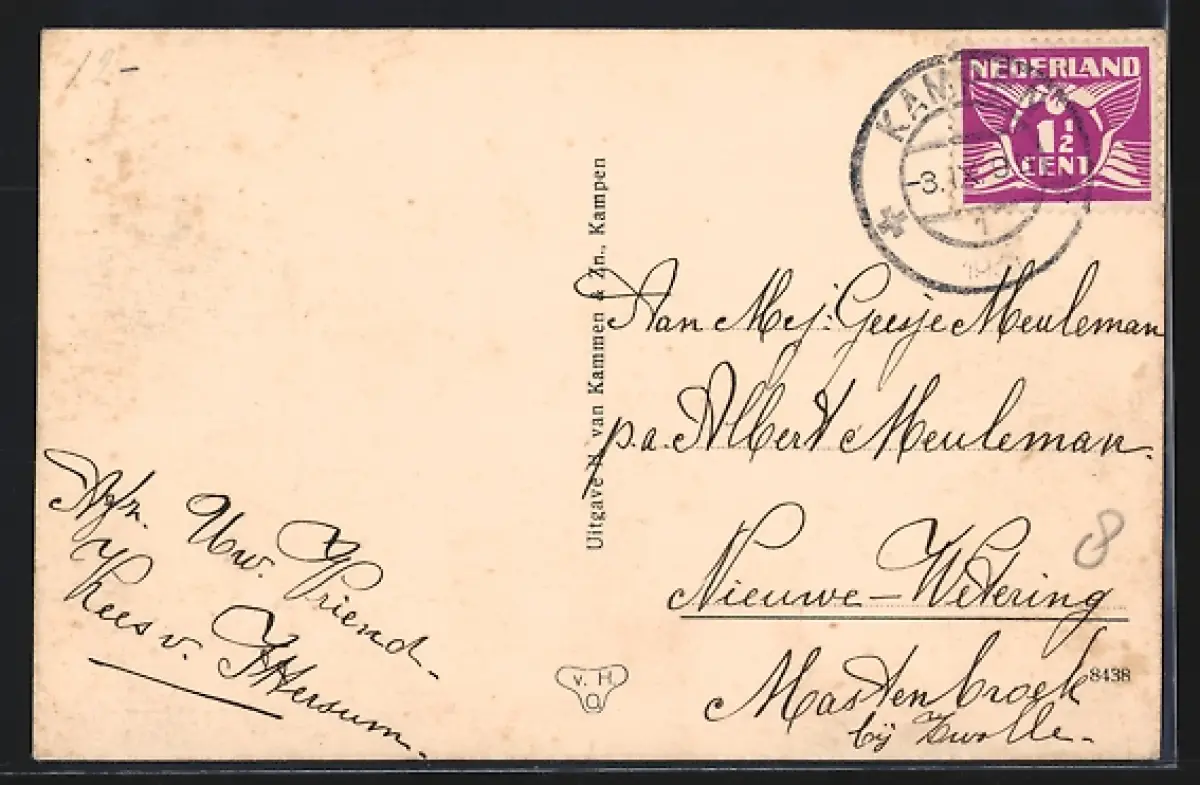 12-
NEDERLAND
1½
CENT
KAMPEN
-3.IX. 9
1
Uitgave H. van Kammen & Zn., Kampen
Aan Mej: Geesje Meuleman
p.a. Albert Meuleman.
Nieuwe-Wetering
Mastenbroek
bij Zwolle.-
8
8438
Afz. Uw. Vriend-
Kees v. Ittersum.-
v. H
O